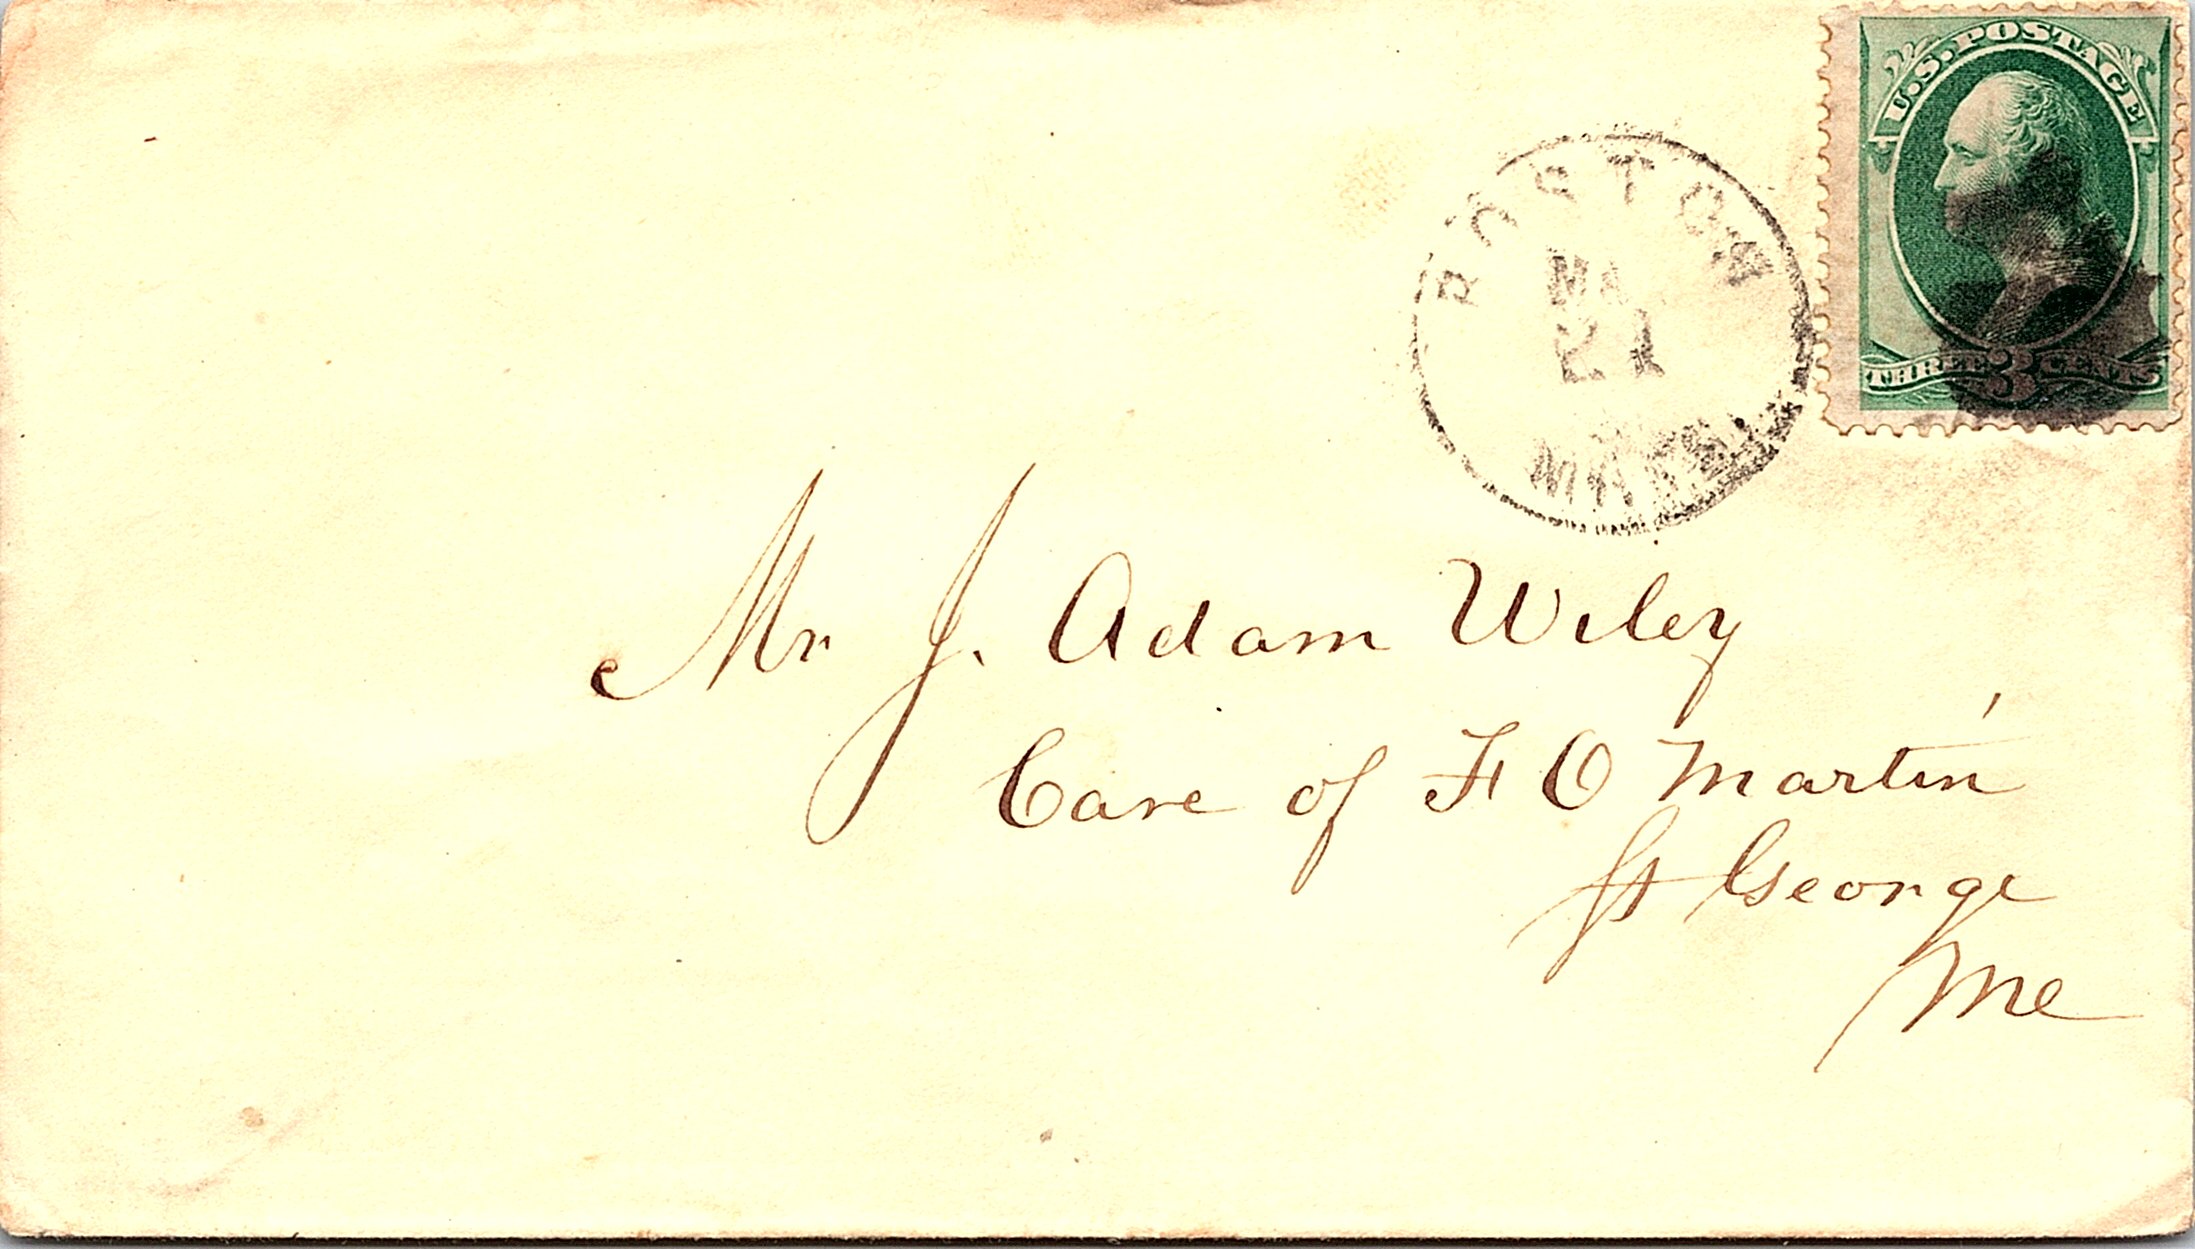 U.S. POSTAGE
THREE 3 CENTS
BOSTON
MASS.
Mr J. Adam Wiley
Care of F O Martin
St George
Me